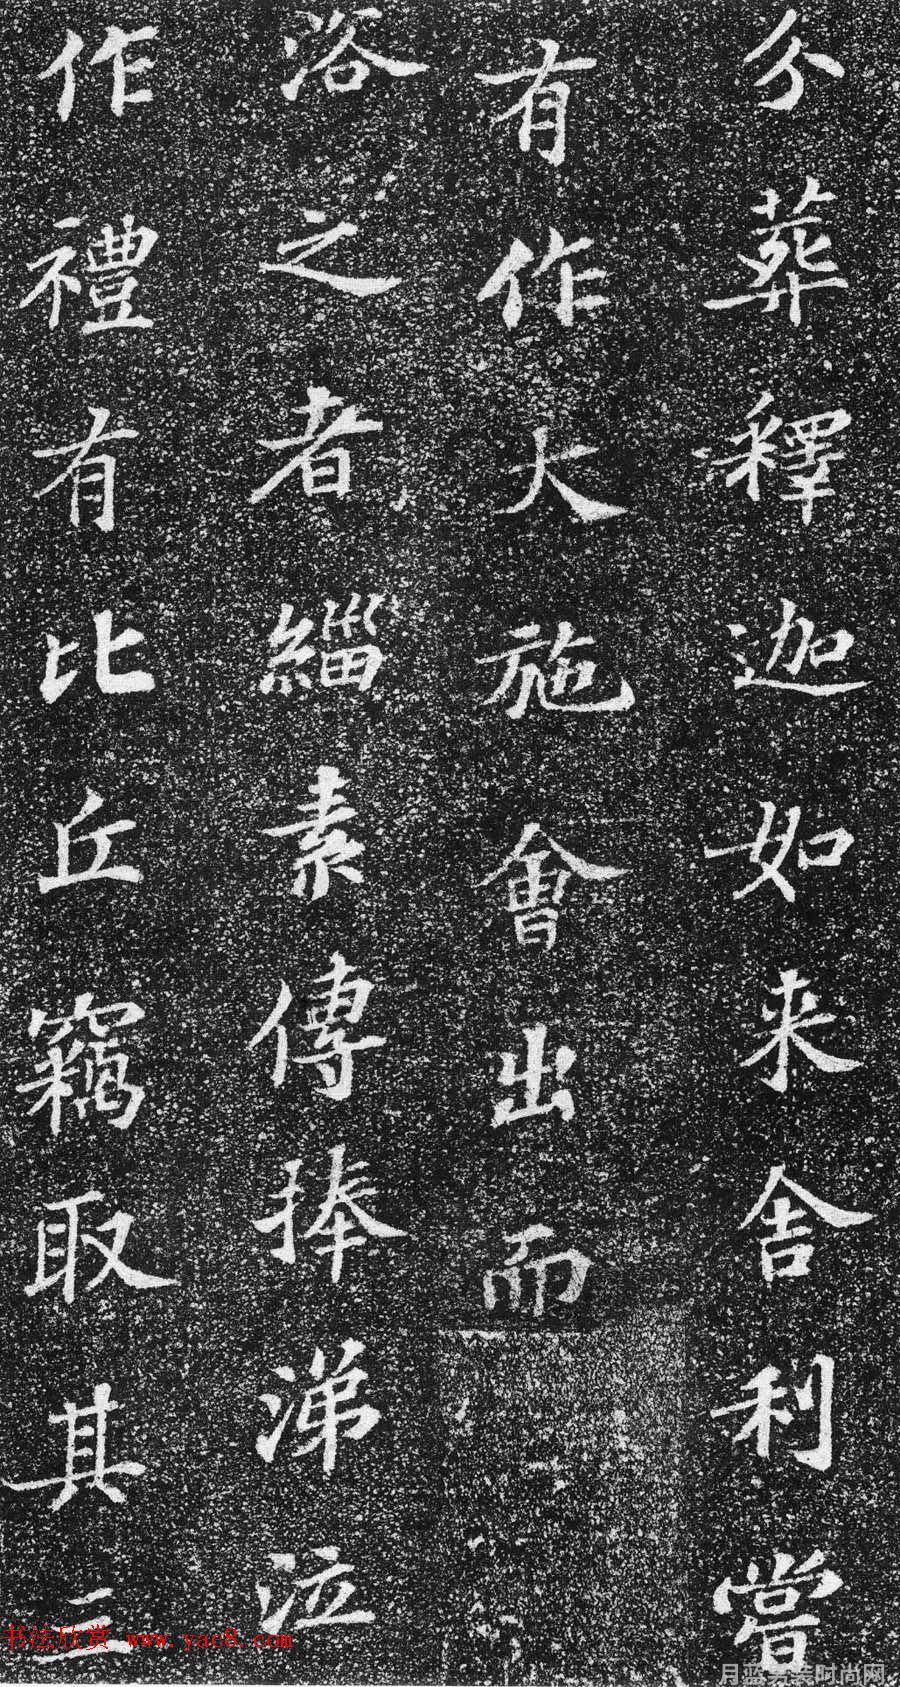 分葬釋迦如来舎利嘗
有作大施會出而
浴之者緇素傳捧涕泣
作禮有比丘竊取其三
书法欣赏 www.yac8.com
月蓝男装时尚网